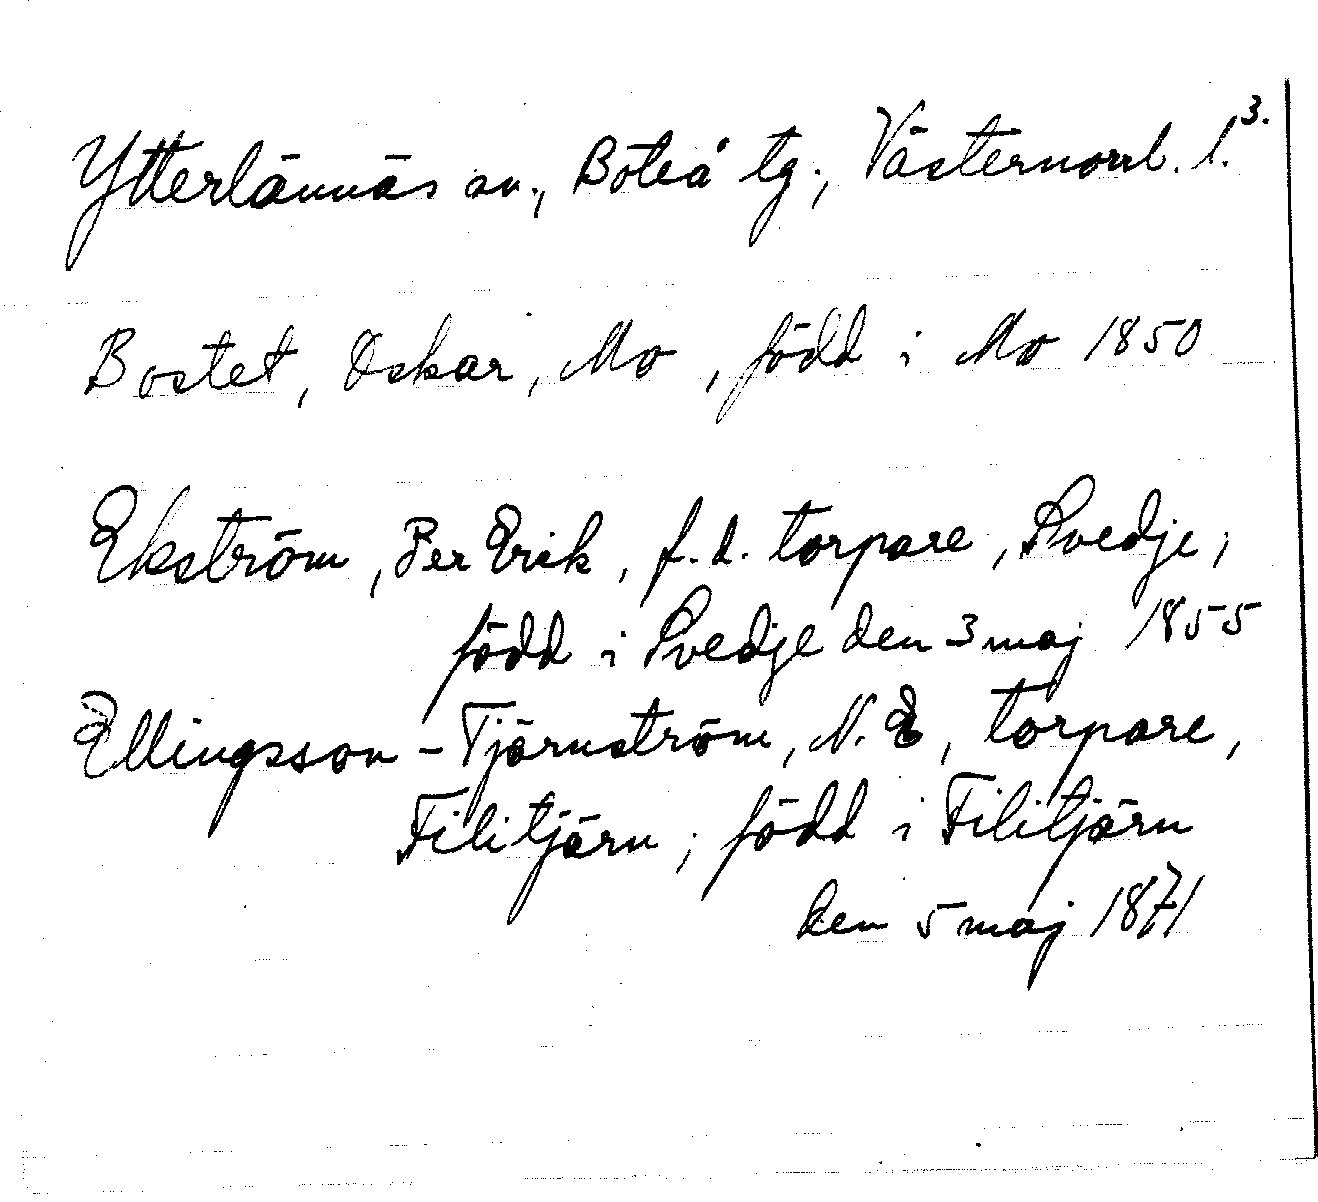 3.
Ytterlännäs sn., Boteå tg., Västernorrl. l.
Bostet, Oskar, Mo, född i Mo 1850
Ekström, Per Erik, f.d. torpare, Svedje,
född i Svedje den 3 maj 1855
Ellingsson-Tjärnström, N.E, torpare,
Filitjärn; född i Filitjärn
den 5 maj 1871